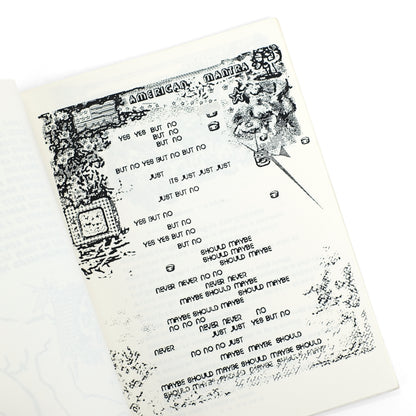 AMERICAN MANTRA
YES YES BUT NO
BUT NO
BUT NO
BUT NO YES BUT NO BUT NO
JUST ITS JUST JUST JUST
JUST BUT NO
YES BUT NO
BUT NO
YES YES BUT NO
BUT NO
SHOULD MAYBE
SHOULD MAYBE
SHOULD MAYBE
NEVER NEVER NO NO NEVER NEVER
MAYBE SHOULD MAYBE SHOULD MAYBE
MAYBE SHOULD MAYBE
NO NO NO NEVER NEVER NO
JUST JUST YES BUT NO
NEVER NO NO NO JUST
MAYBE MAYBE SHOULD
MAYBE SHOULD MAYBE SHOULD MAYBE SHOULD
MAYBE SHOULD MAYBE SHOULD MAYBE SHOULD MAYBE